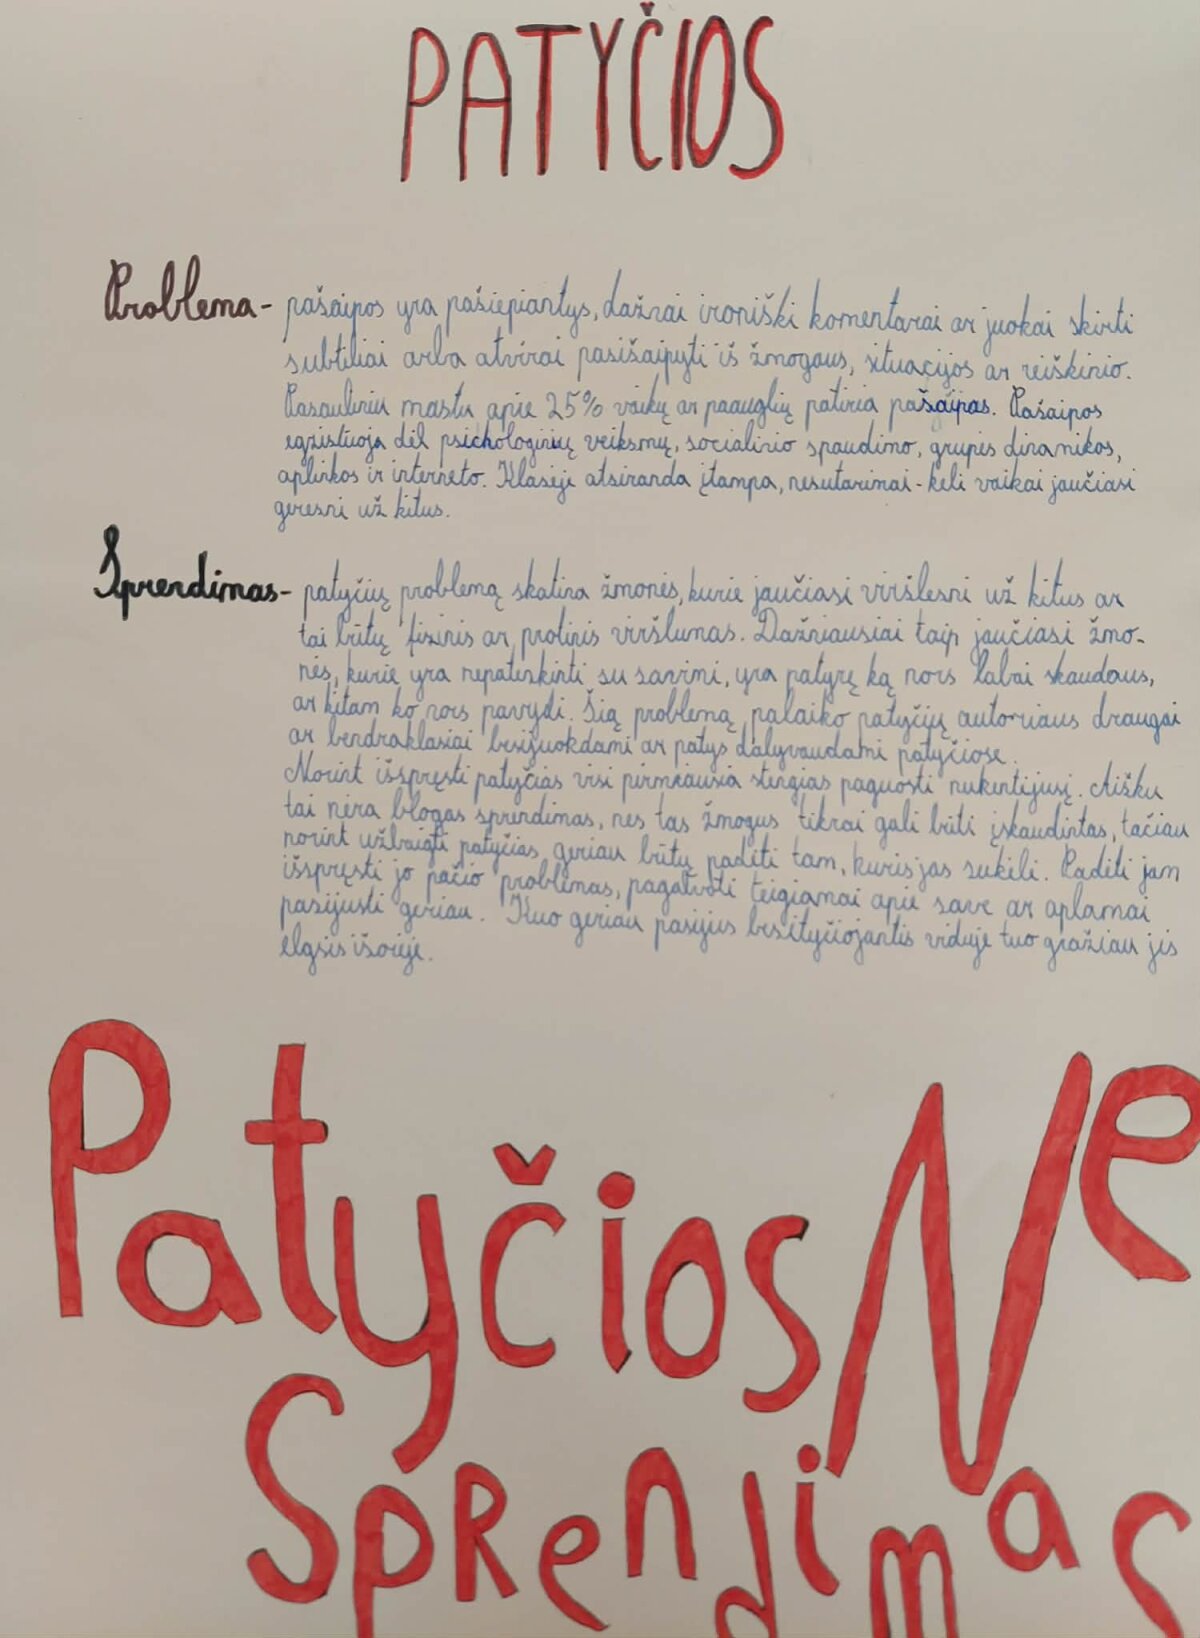 PATYČIOS
Problema- pašaipos yra pašiepiantys, dažnai ironiški komentarai ar juokai skirti
subtiliai arba atvirai pasišaipyti iš žmogaus, situacijos ar reiškinio.
Pasauliniu mastu apie 25% vaikų ar paauglių patiria pašaipas. Pašaipos
egzistuoja dėl psichologinių veiksmų, socialinio spaudimo, grupės dinamikos,
aplinkos ir interneto. Klasėje atsiranda įtampa, nesutarimai - keli vaikai jaučiasi
geresni už kitus.
Sprendimas- patyčių problemą skatina žmonės, kurie jaučiasi viršesni už kitus ar
tai būtų fizinis ar protinis viršumas. Dažniausiai taip jaučiasi žmo-
nės, kurie yra nepatenkinti su savimi, yra patyrę ką nors labai skaudaus,
ar kitam ko nors pavydi. Šią problemą palaiko patyčių autoriaus draugai
ar bendraklasiai besijuokdami ar patys dalyvaudami patyčiose.
Norint išspręsti patyčias visi pirmiausia stengias paguosti nukentėjusį. Aišku
tai nėra blogas sprendimas, nes tas žmogus tikrai gali būti įskaudintas, tačiau
norint užbaigti patyčias, geriau būtų padėti tam, kuris jas sukėlė. Padėti jam
išspręsti jo pačio problemas, pagalvoti teigiamai apie save ar aplamai
pasijusti geriau. Kuo geriau pasijus besityčiojantis viduje tuo gražiau jis
elgsis išorėje.
Patyčios Ne
Sprendimas